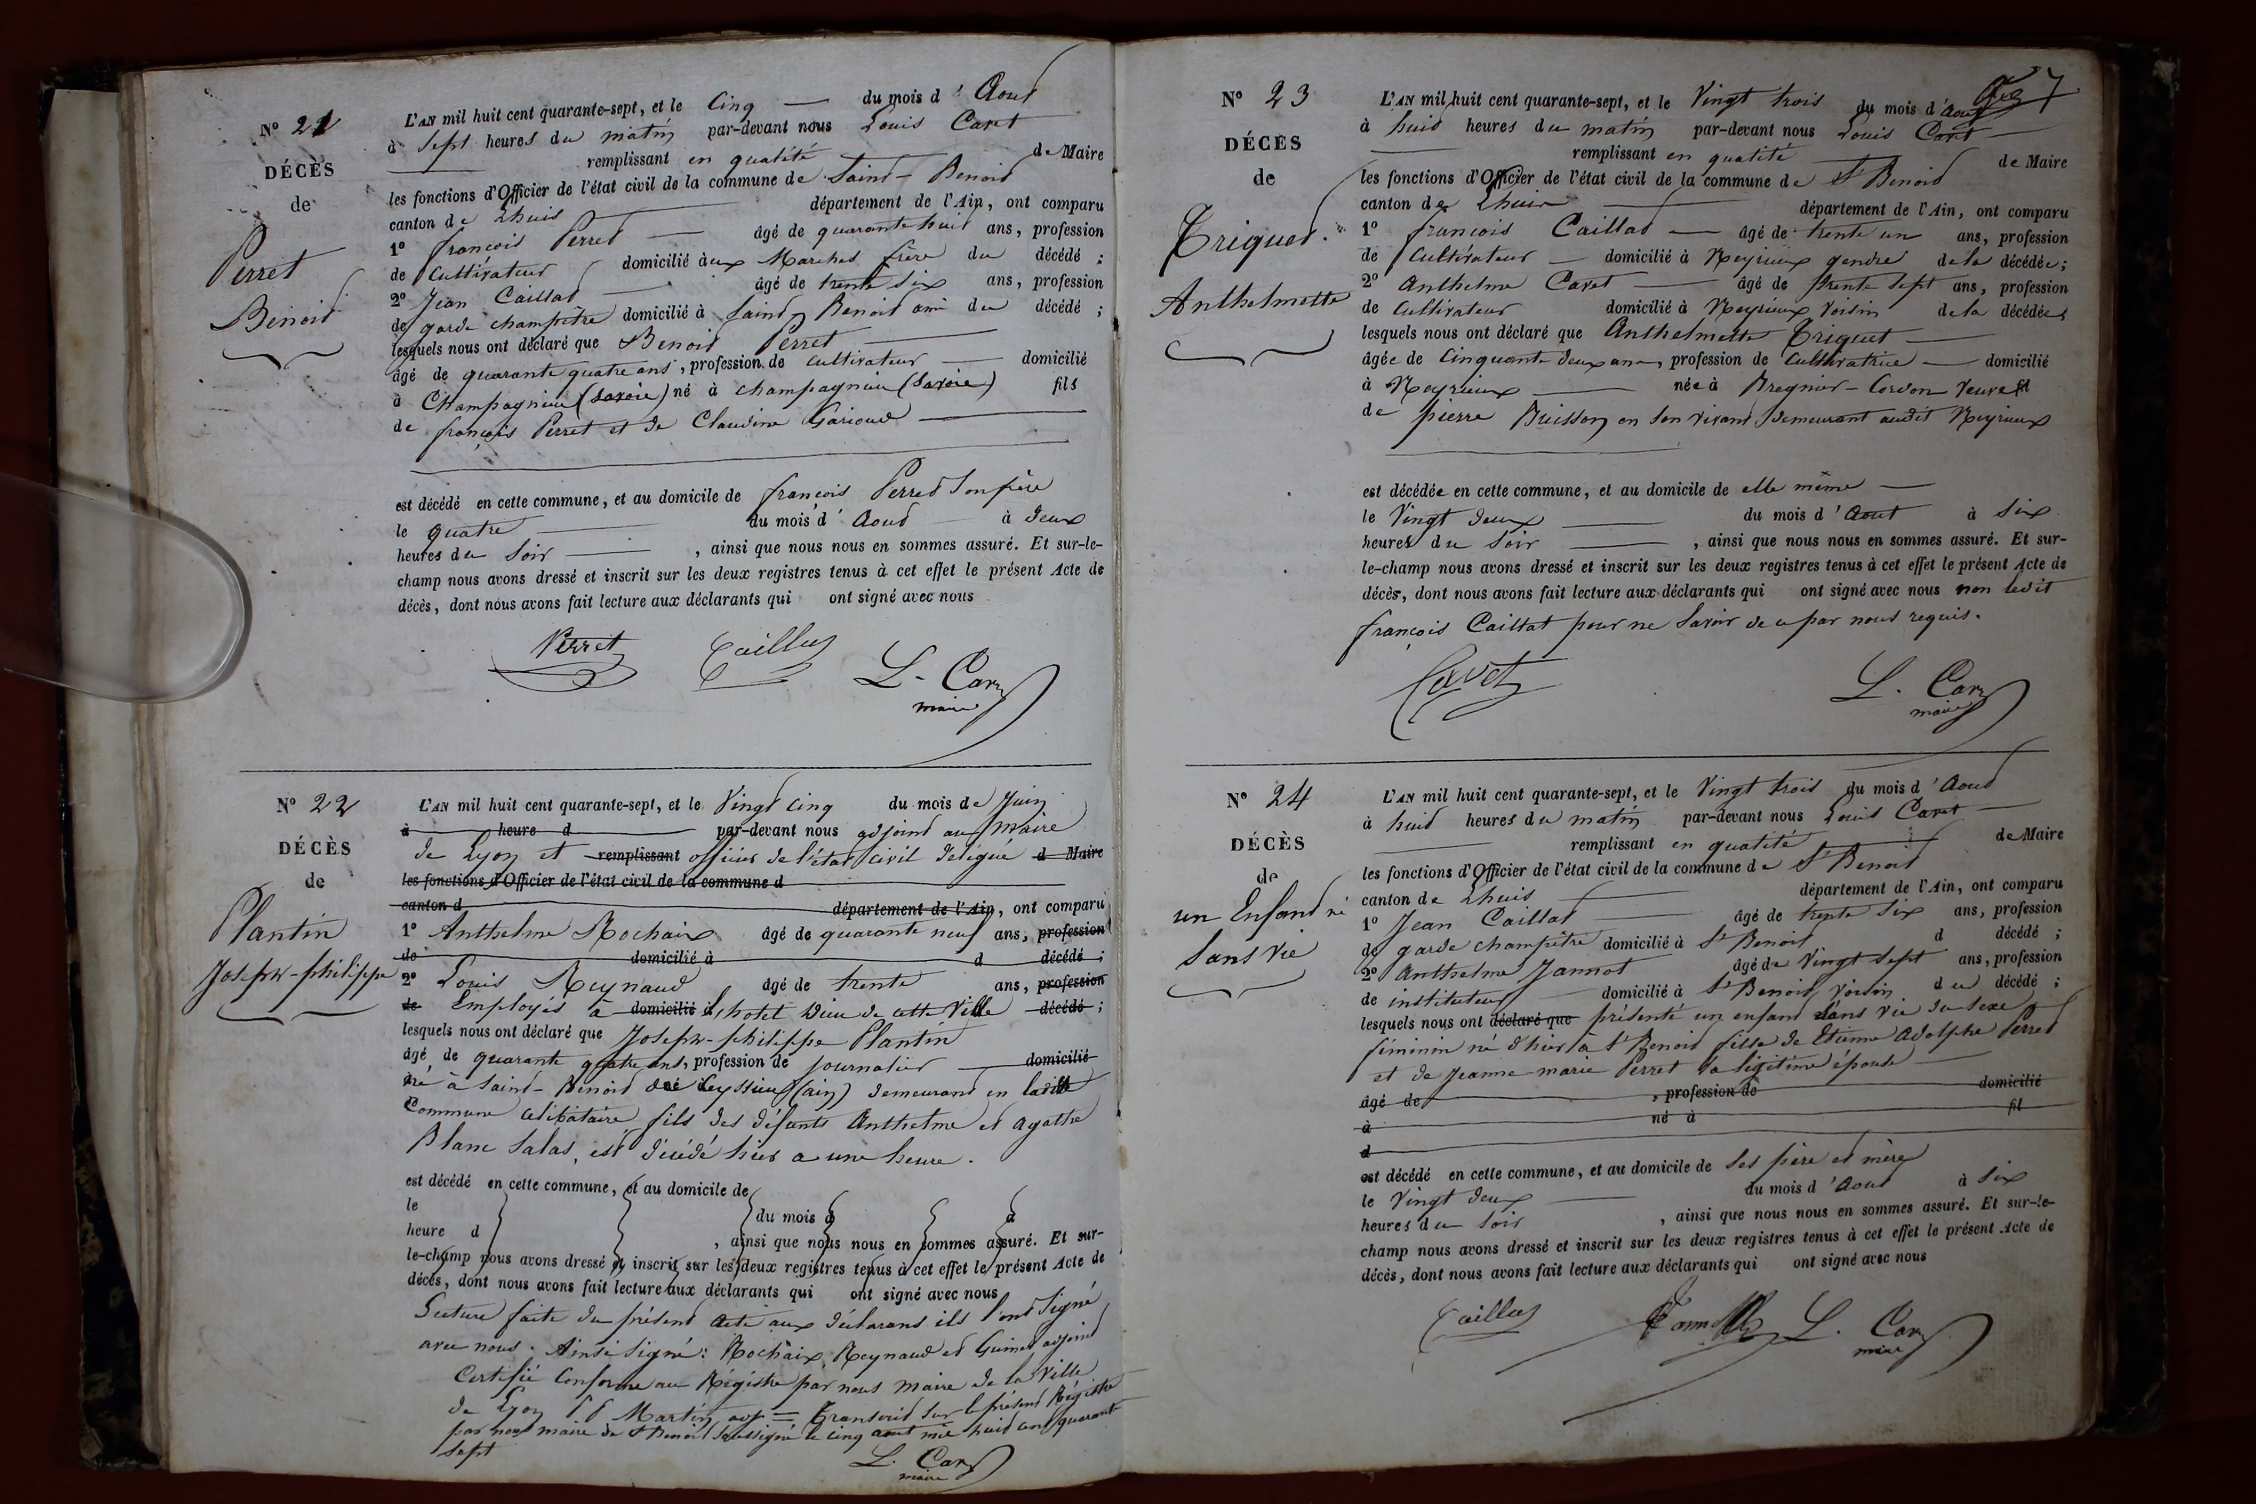 N° 21
DÉCÈS
de
Perret
Benoit
L'AN mil huit cent quarante-sept, et le Cinq du mois d' Aout
à Sept heures du matin par-devant nous Louis Cavet
remplissant en qualité de Maire
les fonctions d'Officier de l'état civil de la commune de Saint-Benoit
canton de Lhuis département de l'Ain, ont comparu
1° françois Perret âgé de quarante huit ans, profession
de Cultivateur domicilié aux Marches frère du décédé ;
2° Jean Caillat âgé de trente six ans, profession
de garde champêtre domicilié à Saint Benoit ami du décédé ;
lesquels nous ont déclaré que Benoit Perret
âgé de quarante quatre ans, profession de cultivateur domicilié
à Champagnieu (Savoie) né à Champagnieu (Savoie) fils
de françois Perret et de Claudine Garioud
est décédé en cette commune, et au domicile de françois Perret son frère
le quatre du mois d' Aout à deux
heures du Soir , ainsi que nous nous en sommes assuré. Et sur-le-
champ nous avons dressé et inscrit sur les deux registres tenus à cet effet le présent Acte de
décès, dont nous avons fait lecture aux déclarants qui ont signé avec nous
Perret Caillat L. Cavet
maire
N° 22
DÉCÈS
de
Plantin
Joseph-philippe
L'AN mil huit cent quarante-sept, et le Vingt cinq du mois de Juin
à heure d par-devant nous adjoint au Maire
de Lyon et remplissant officier de l'état civil délégué d Maire
les fonctions d'Officier de l'état civil de la commune d
canton d département de l'Ain, ont comparu
1° Anthelme Rochaix âgé de quarante neuf ans, profession
de domicilié à d décédé ;
2° Louis Reynaud âgé de trente ans, profession
de Employés à domicilié L'hotel Dieu de cette Ville décédé ;
lesquels nous ont déclaré que Joseph-philippe Plantin
âgé de quarante quatre ans, profession de journalier domicilié
né à Saint-Benoit de Seyssieu (ain) demeurant en ladite
Commune célibataire fils des défunts Anthelme et agathe
Blanc Salas, est décédé hier a une heure.
est décédé en cette commune, et au domicile de
le du mois d à
heure d , ainsi que nous nous en sommes assuré. Et sur-
le-champ nous avons dressé et inscrit sur les deux registres tenus à cet effet le présent Acte de
décès, dont nous avons fait lecture aux déclarants qui ont signé avec nous
Lecture faite du présent acte aux déclarans ils l'ont signé
avec nous. Ainsi signé: Rochaix, Reynaud et Guimet adjoint
Certifié Conforme au Régistre par nous maire de la Ville
de Lyon Martin adj = Transcrit sur le présent Régistre
par nous maire de St Benoit soussigné le cinq aout mil huit cent quarante
sept
L. Cavet
maire
N° 23
DÉCÈS
de
Triquet
Anthelmette
7
L'AN mil huit cent quarante-sept, et le Vingt trois du mois d' Aout
à huit heures du matin par-devant nous Louis Cavet
remplissant en qualité de Maire
les fonctions d'Officier de l'état civil de la commune de St Benoit
canton de Lhuis département de l'Ain, ont comparu
1° françois Caillat âgé de trente un ans, profession
de Cultivateur domicilié à Neyrieux gendre de la décédée ;
2° Anthelme Cavet âgé de trente sept ans, profession
de Cultivateur domicilié à Neyrieux voisin de la décédée ;
lesquels nous ont déclaré que Anthelmette Triquet
âgée de Cinquante deux ans, profession de Cultivatrice domicilié
à Neyrieux née à Bregnier-Cordon Veuve
de pierre Buisson en son vivant demeurant audit Neyrieux
est décédée en cette commune, et au domicile de elle même
le Vingt deux du mois d' Aout à Six
heures du Soir , ainsi que nous nous en sommes assuré. Et sur-
le-champ nous avons dressé et inscrit sur les deux registres tenus à cet effet le présent Acte de
décès, dont nous avons fait lecture aux déclarants qui ont signé avec nous non ledit
françois Caillat pour ne Savoir de ce par nous requis.
Cavet L. Cavet
maire
N° 24
DÉCÈS
de
un Enfant né
Sans vie
L'AN mil huit cent quarante-sept, et le Vingt trois du mois d' Aout
à huit heures du matin par-devant nous Louis Cavet
remplissant en qualité de Maire
les fonctions d'Officier de l'état civil de la commune de St Benoit
canton de Lhuis département de l'Ain, ont comparu
1° Jean Caillat âgé de trente six ans, profession
de garde champêtre domicilié à St Benoit d décédé ;
2° Anthelme Jannot âgé de Vingt sept ans, profession
de instituteur domicilié à St Benoit, voisin du décédé ;
lesquels nous ont déclaré que présenté un enfant sans vie du sexe
féminin né d'hier a St Benoit fille de Etienne Adolphe Perret
et de Jeanne-marie Perret sa légitime épouse
âgé de , profession de domicilié
à né à fil
d
est décédé en cette commune, et au domicile de Ses père et mère
le Vingt deux du mois d' Aout à Six
heures du Soir , ainsi que nous nous en sommes assuré. Et sur-le-
champ nous avons dressé et inscrit sur les deux registres tenus à cet effet le présent Acte de
décès, dont nous avons fait lecture aux déclarants qui ont signé avec nous
Caillat Jannot L. Cavet
maire